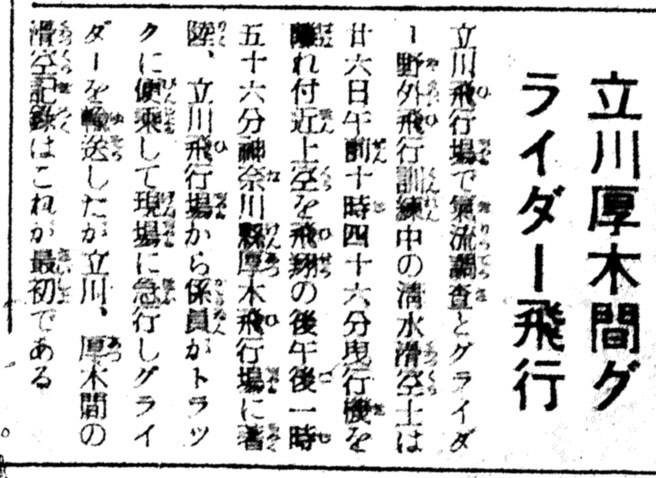 立川厚木間グ
ライダー飛行
立川飛行場で氣流調査とグライダ
ー野外飛行訓練中の清水滑空士は
廿六日午前十時四十六分曳行機を
離れ付近上空を飛翔の後午後一時
五十六分神奈川縣厚木飛行場に著
陸、立川飛行場から係員がトラッ
クに便乘して現場に急行しグライ
ダーを輸送したが立川、厚木間の
滑空記錄はこれが最初である